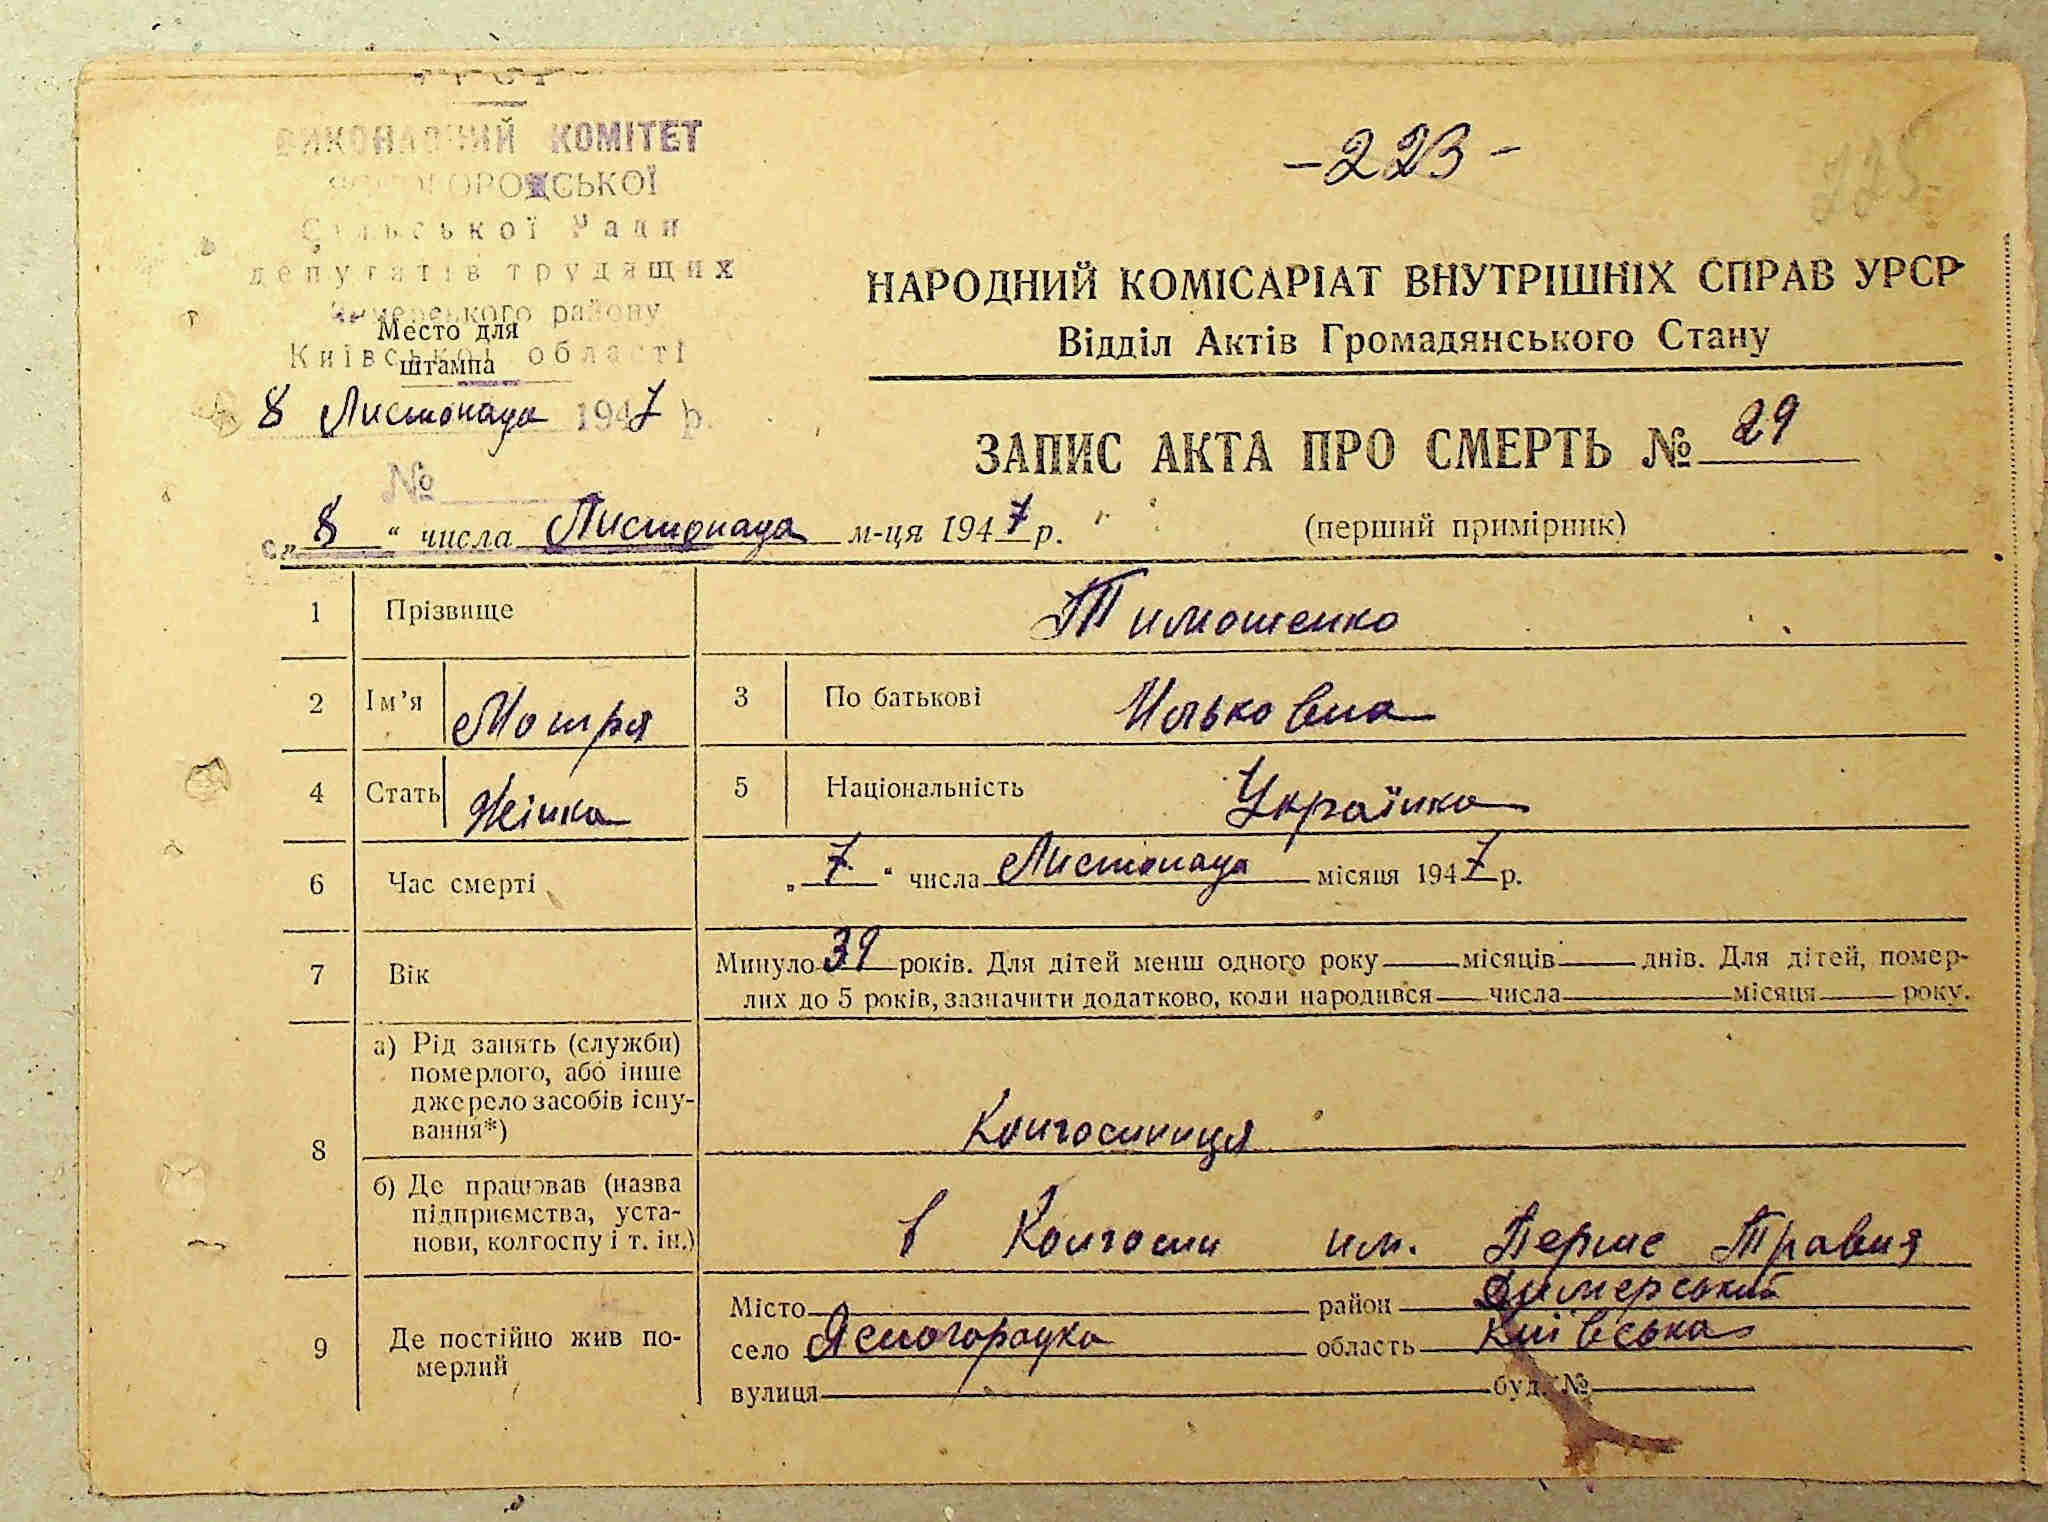 УРСР
ВИКОНАВЧИЙ КОМІТЕТ
ЯСНОГОРОДСЬКОЇ
Сільської Ради
депутатів трудящих
Димерського району
Київської області
Место для
штампа
8 Листопада 1947 р.
№
- 223 -
225
НАРОДНИЙ КОМІСАРІАТ ВНУТРІШНІХ СПРАВ УРСР
Відділ Актів Громадянського Стану
ЗАПИС АКТА ПРО СМЕРТЬ № 29
„8“ числа Листопада м-ця 1947 р. (перший примірник)
1 Прізвище Тимошенко
2 Ім’я Мотря 3 По батькові Ильковна
4 Стать Жінка 5 Національність Українка
6 Час смерті „7“ числа Листопада місяця 1947 р.
7 Вік Минуло 39 років. Для дітей менш одного року місяців днів. Для дітей, помер-
лих до 5 років, зазначити додатково, коли народився числа місяця року.
8 а) Рід занять (служби)
померлого, або інше
джерело засобів існу-
вання*) Колгоспниця
б) Де працював (назва
підприємства, уста-
нови, колгоспу і т. ін.) в Колгоспи им. Перше Травня
9 Де постійно жив по-
мерлий
Місто район Димерський
село Ясногородка область Київська
вулиця буд. №